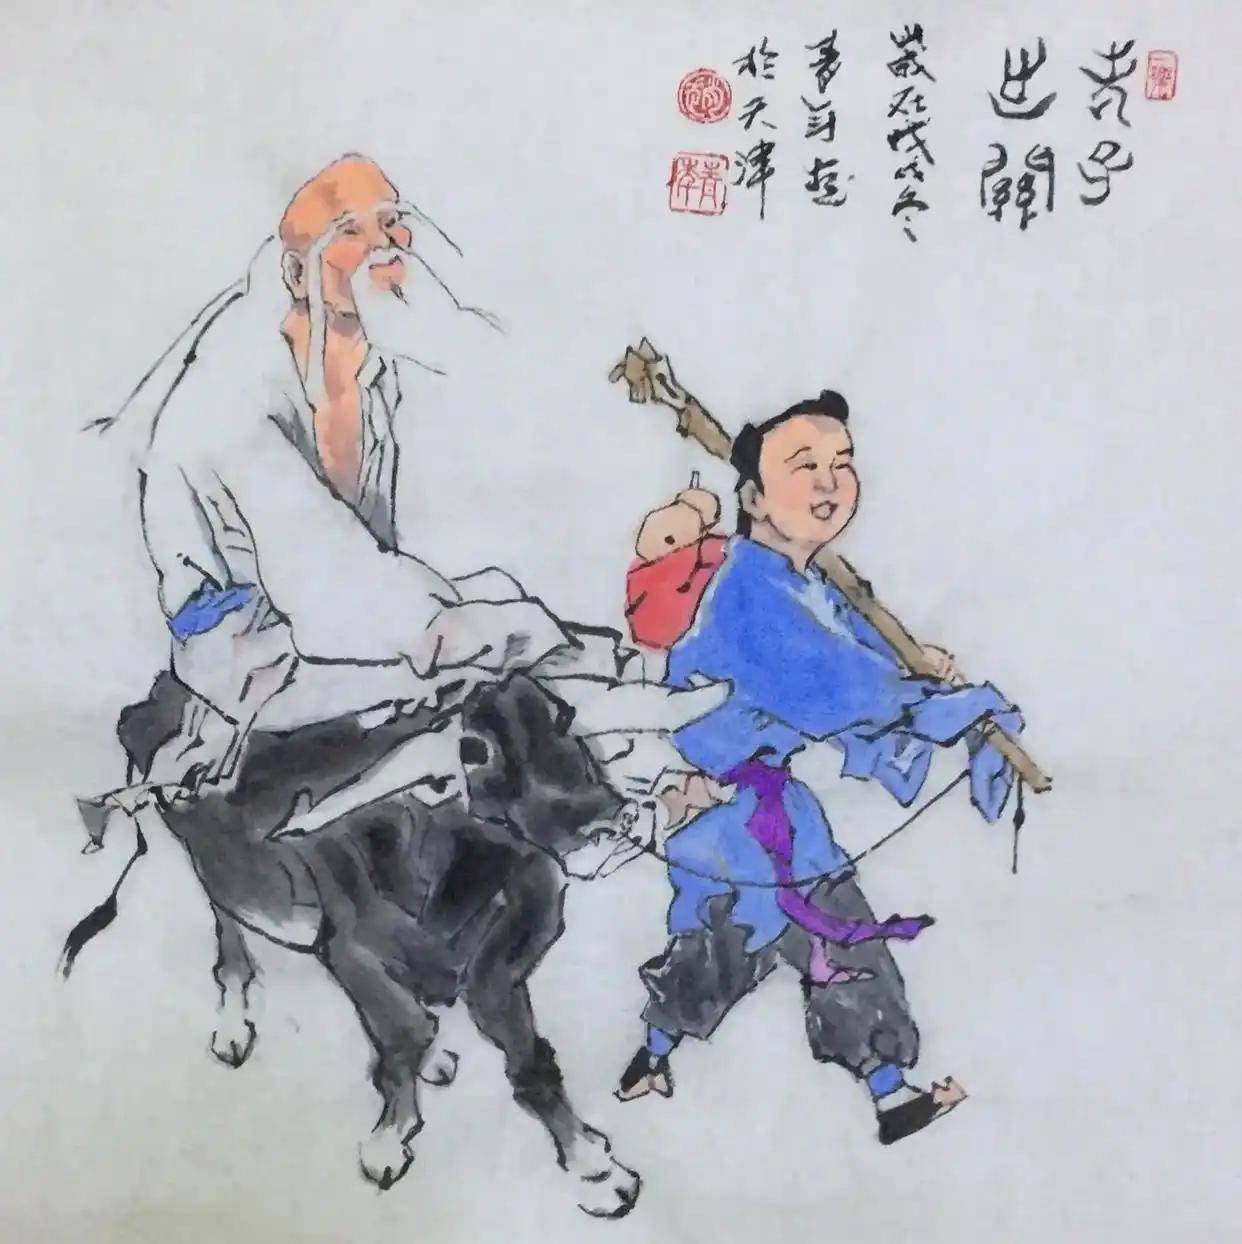 老子
出關
歲在戊戌冬
青年畫
於天津